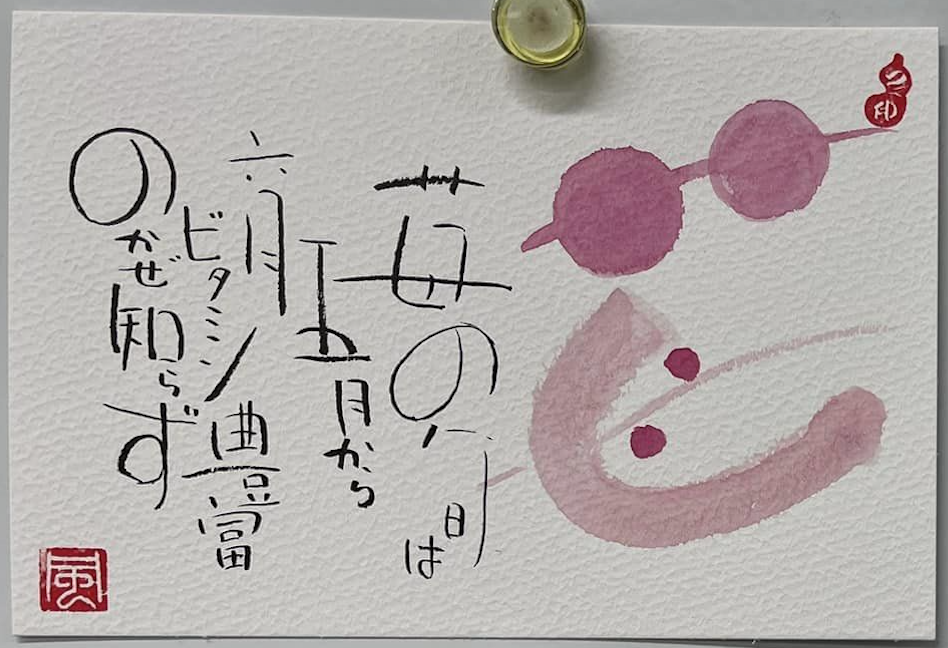 苺の旬は
五月から
六月
ビタミン豊富
のかぜ知らず
之印
風